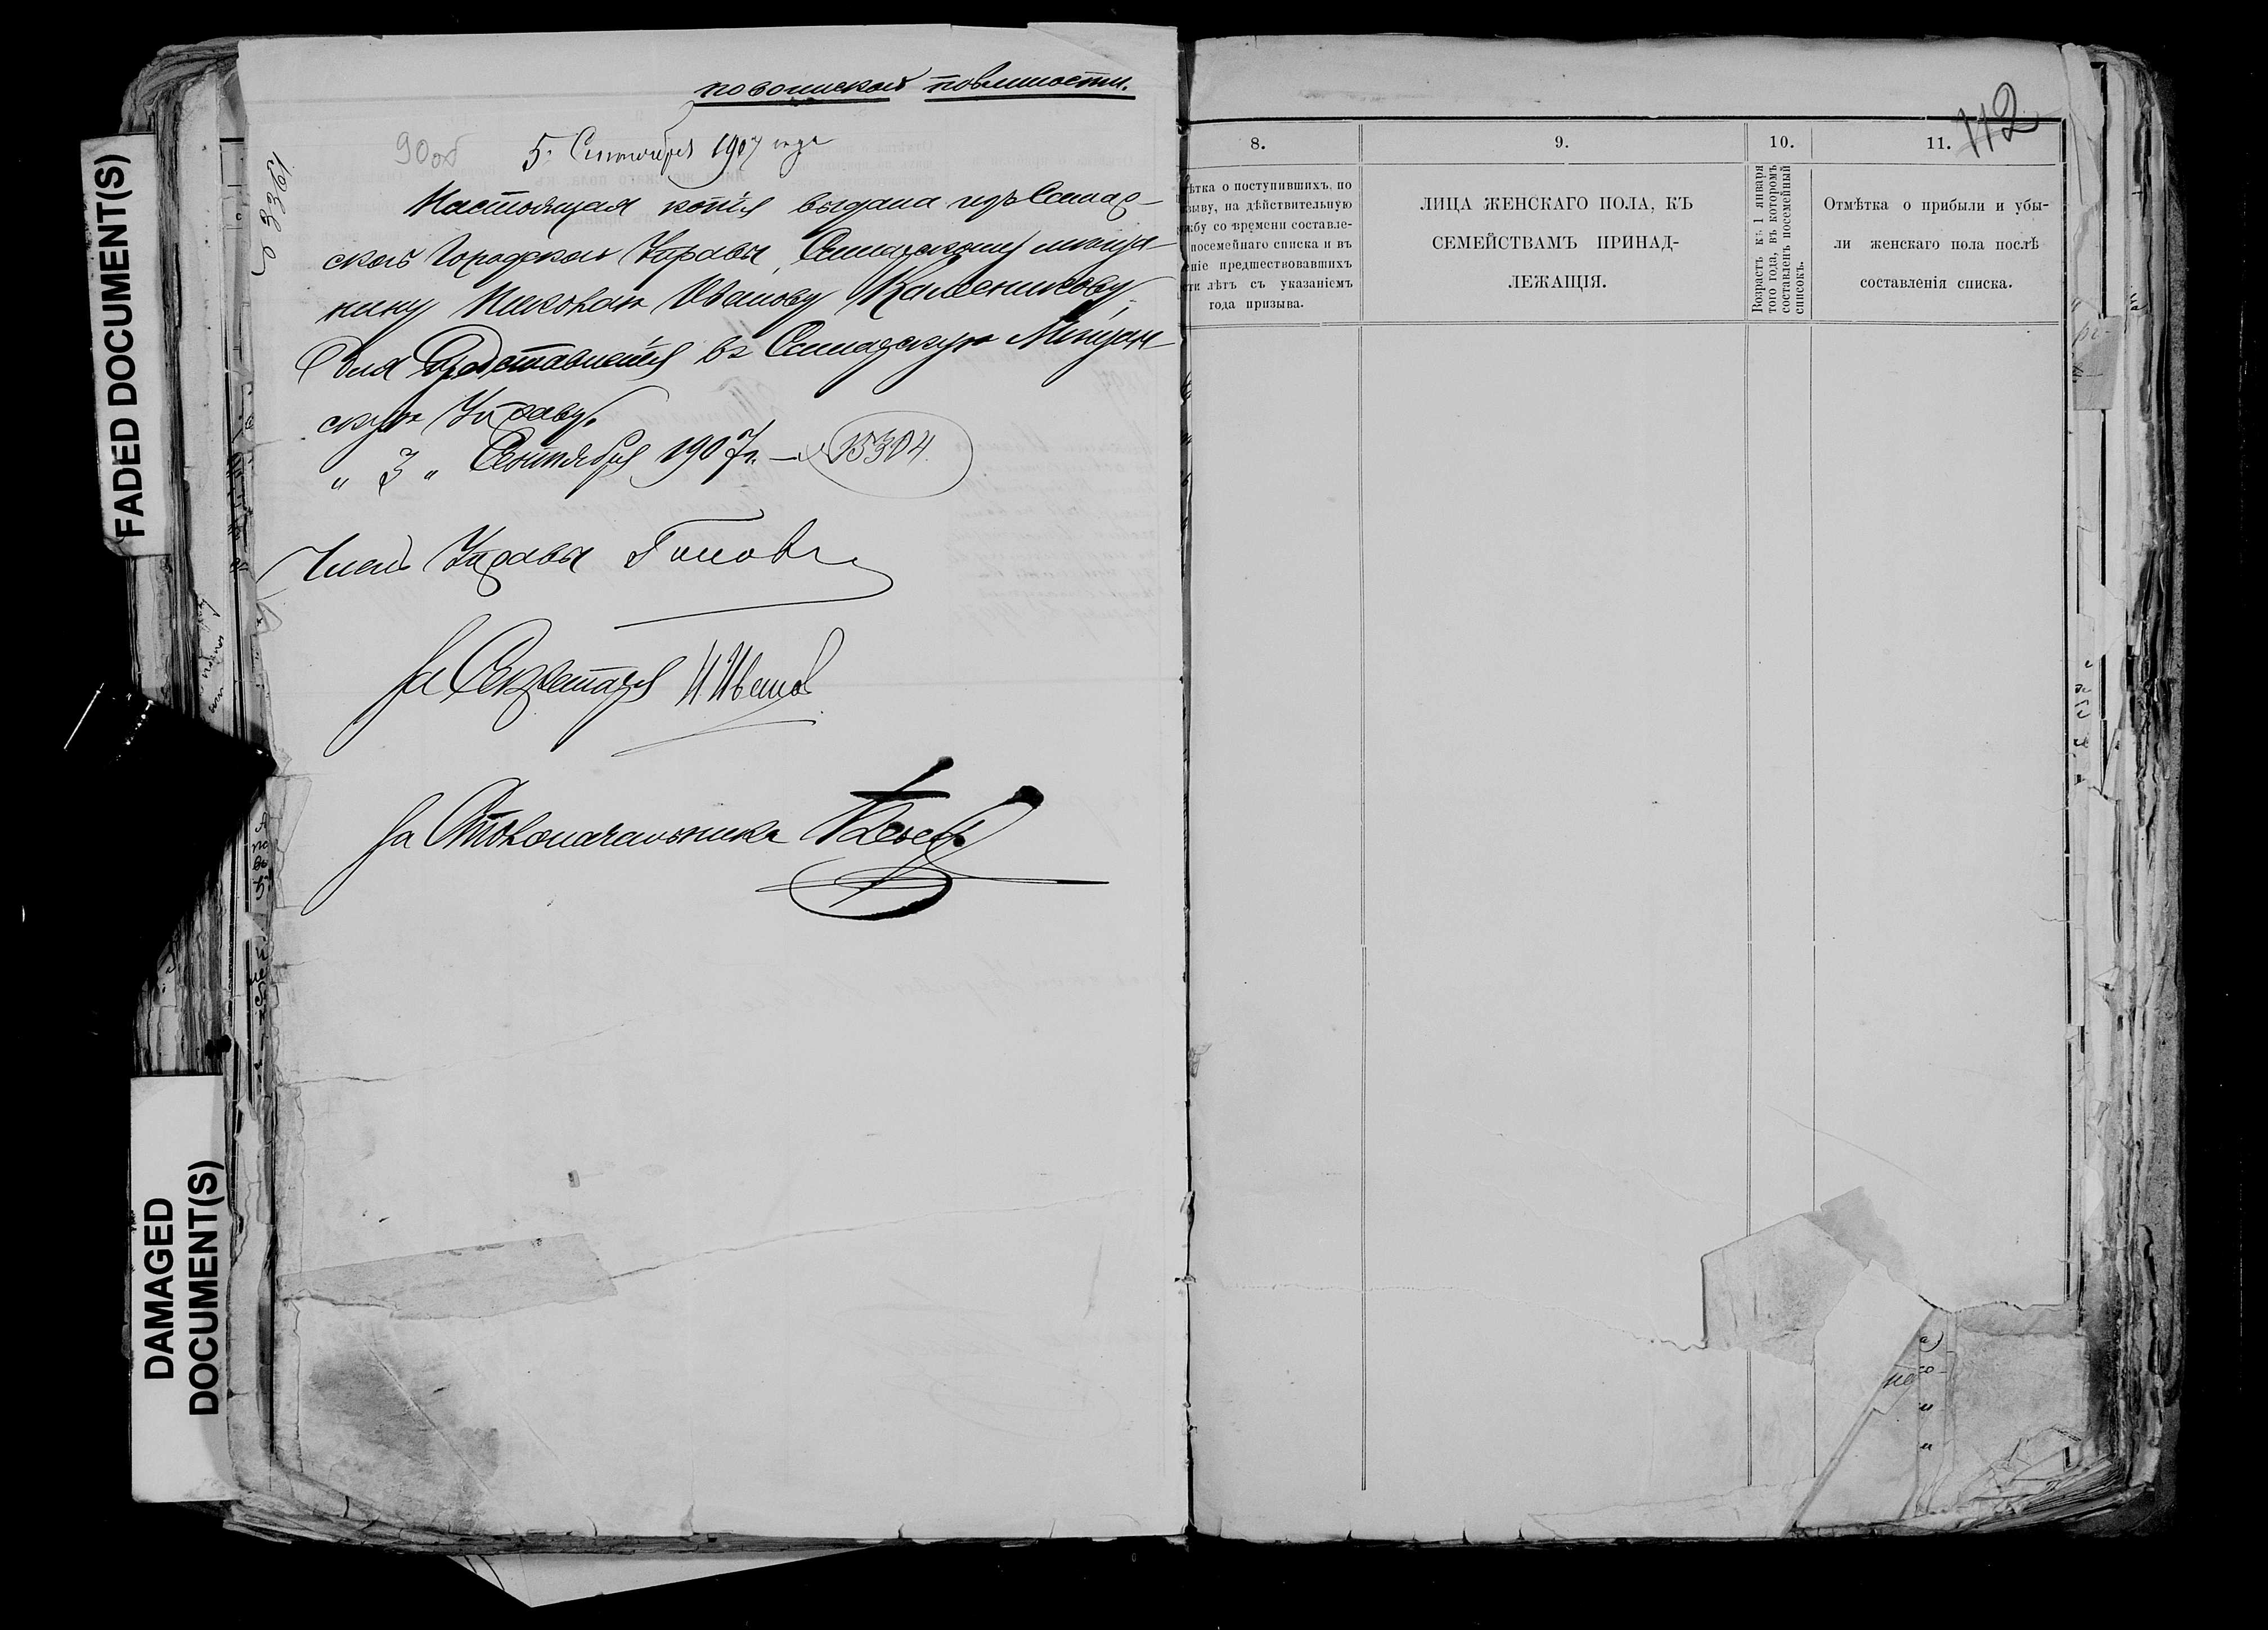 FADED DOCUMENT(S)
DAMAGED
DOCUMENT(S)
по воинской повинности.
90об
5. Сентября 1907 года
Настоящая копія выдана изъ Самар-
ской Городской Управы, Самарскому мѣща-
нину Николаю Иванову Калесникову
для представленія въ Самарскую Мѣщан-
скую Управу.
" 3 " Сентября 1907 г. — № 15304.
Членъ Управы
За Секретаря И Иванов
За Столоначальника
112
8.
9.
10.
11.
ѣтка о поступившихъ, по
зыву, на дѣйствительную
жбу со времени составле-
посемейнаго списка и въ
еніе предшествовавшихъ
сти лѣтъ съ указаніемъ
года призыва.
ЛИЦА ЖЕНСКАГО ПОЛА, КЪ
СЕМЕЙСТВАМЪ ПРИНАД-
ЛЕЖАЩІЯ.
Возрастъ къ 1 января
того года, въ которомъ
составленъ посемейный
списокъ.
Отмѣтка о прибыли и убы-
ли женскаго пола послѣ
составленія списка.